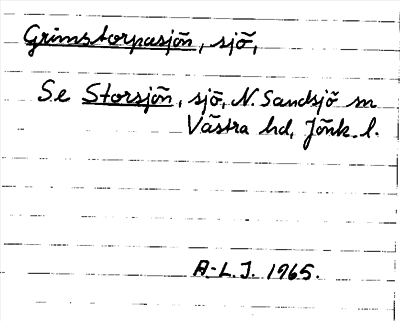 Grimstorpasjön, sjö,
Se Storsjön, sjö, N. Sandsjö sn
Västra hd, Jönk. l.
A-L. J. 1965.